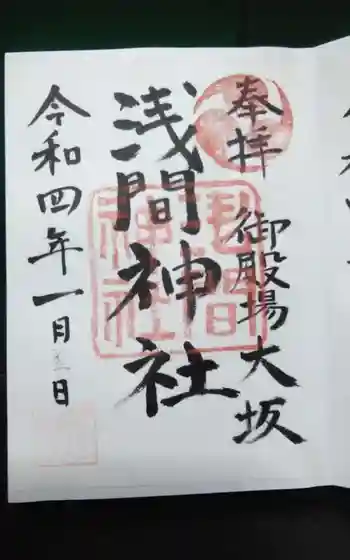 奉拝
御殿場大坂
浅間神社
令和四年一月三日
浅間
神社